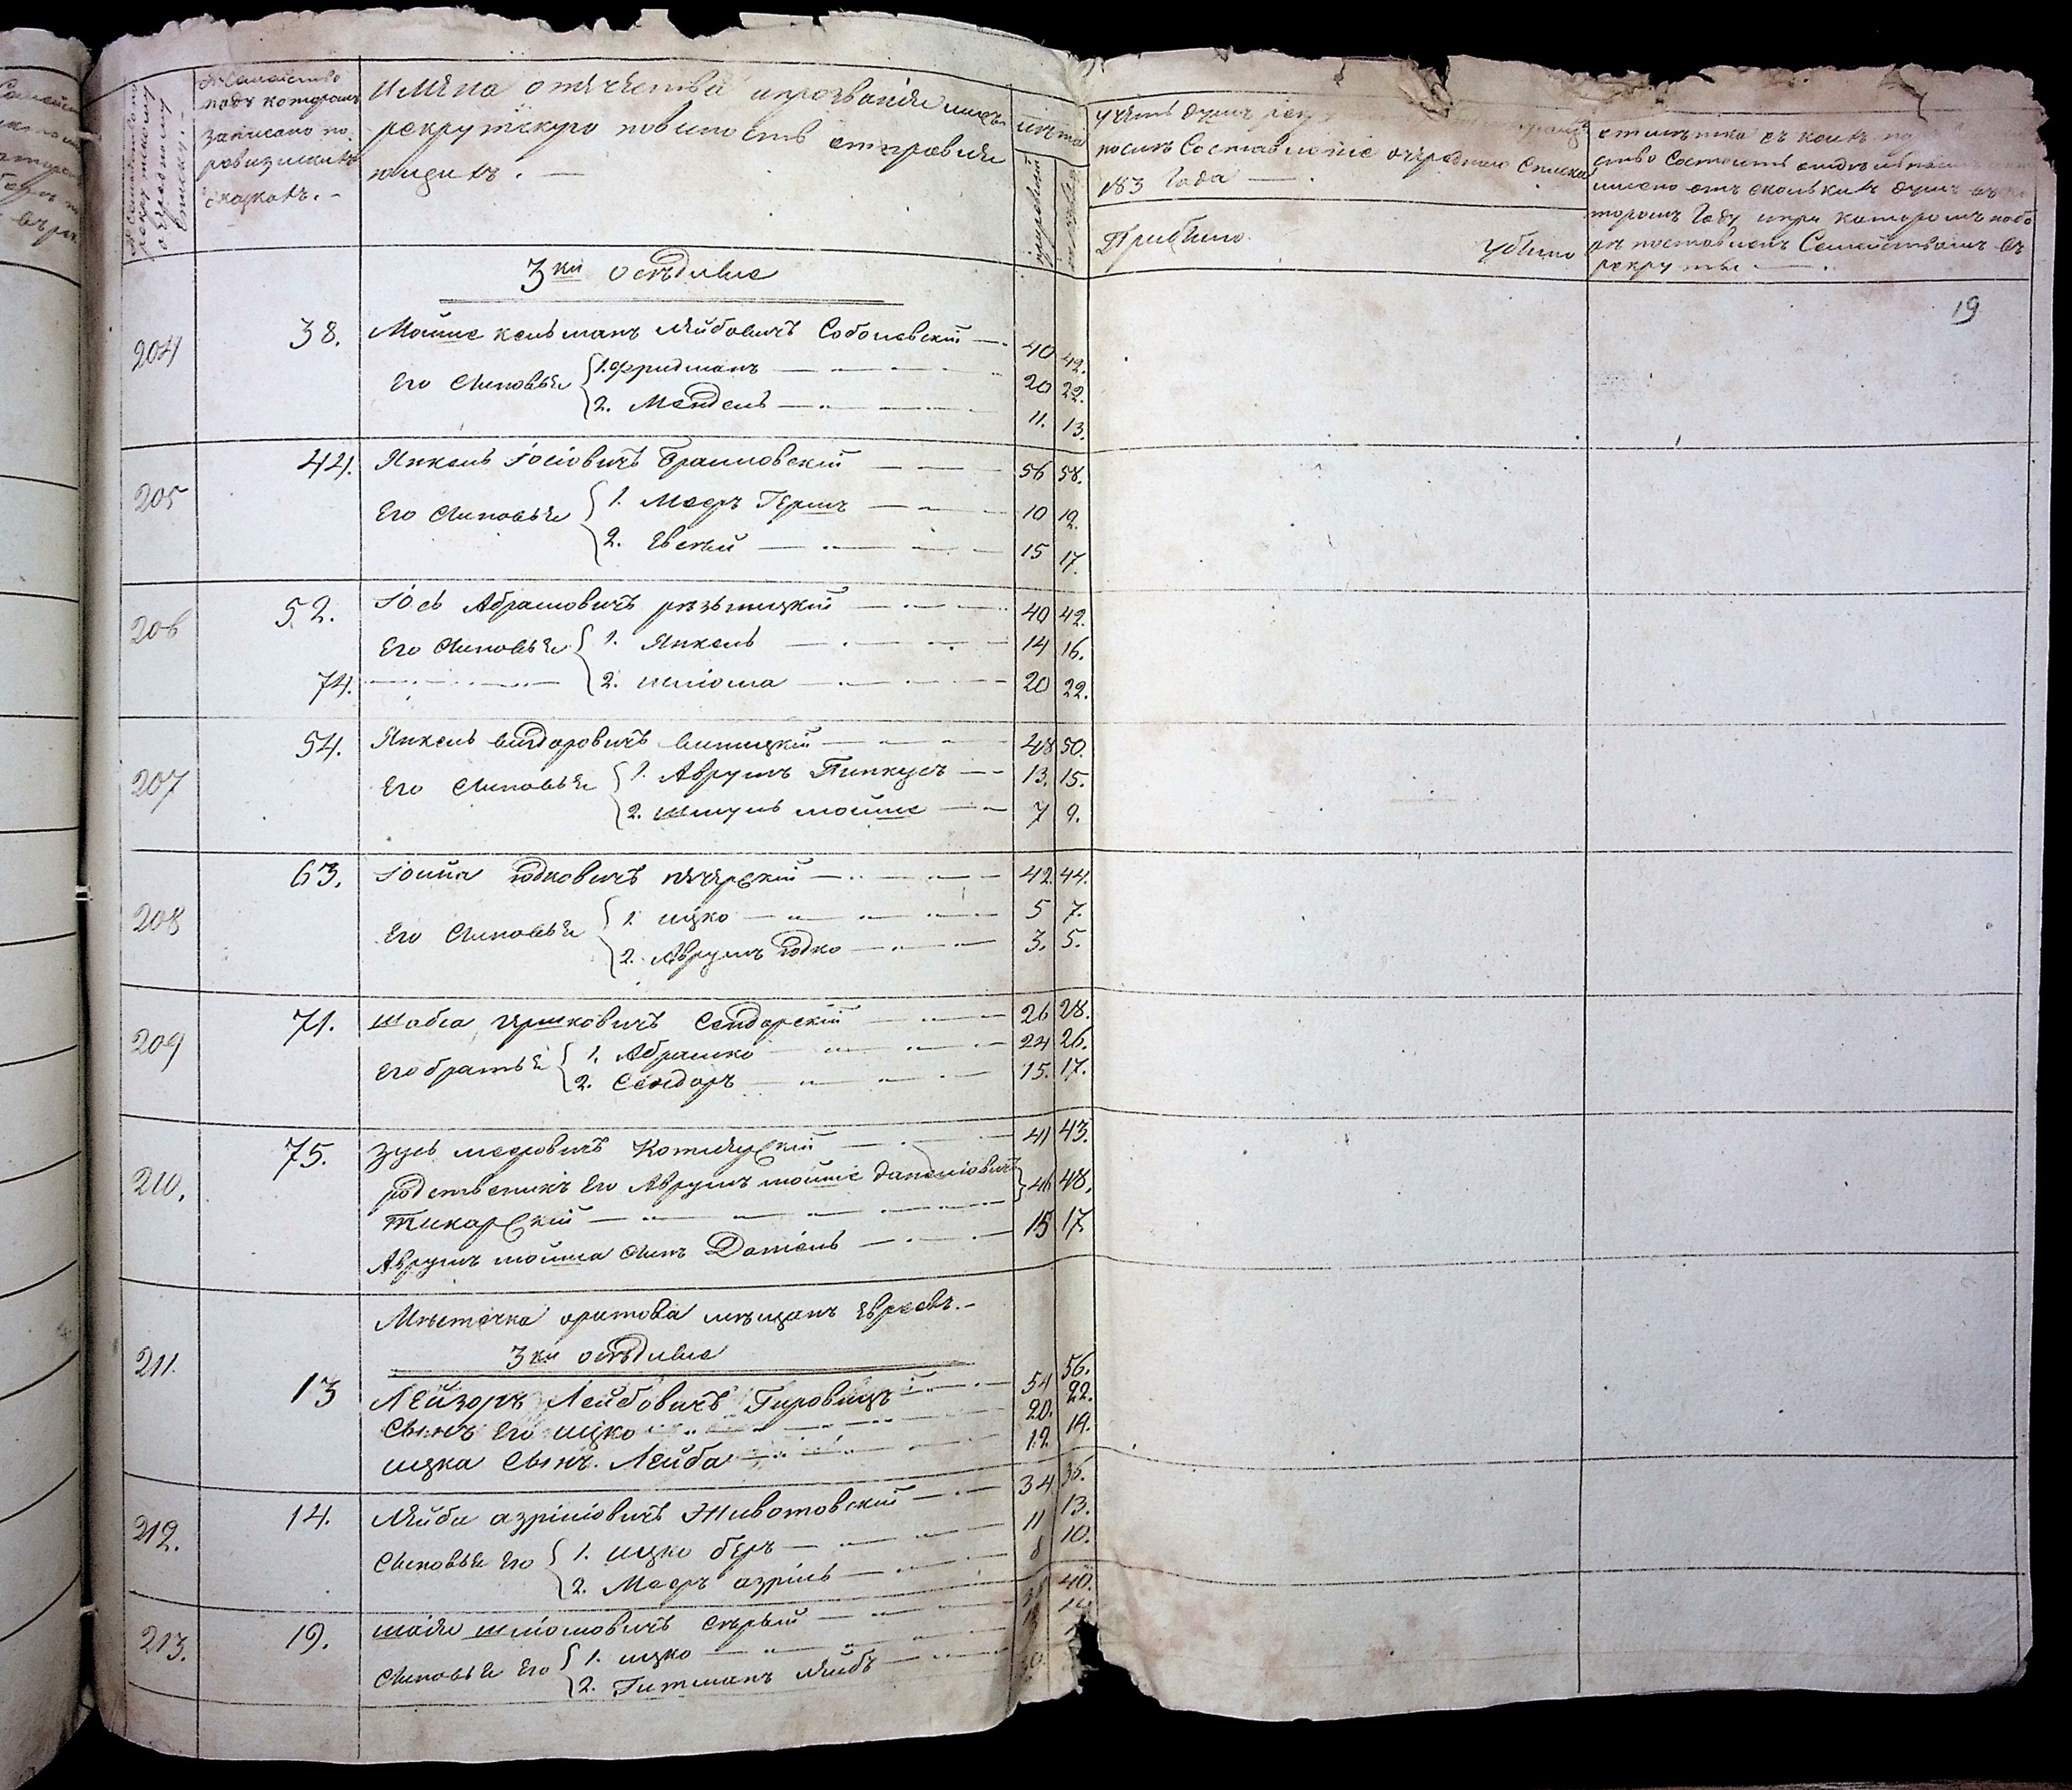 № Семейства по рекрутскому очередному списку.
№ Семейства
подъ которымъ
записано по
ревизскимъ
сказкамъ. -
Имена отечества и прозвания лицъ
рекрутскую повинность отправля
ющихъ. —
лѣта
Учетъ душъ
послѣ Составленіе очереднаго Списка
183 Года —
Прибыло
Убыло
отмѣтка съ коихъ
ство Состоитъ
имено отъ сколькихъ душъ въ ко
торомъ Году и при которомъ набо
рѣ поставленъ Семействомъ въ
рекруты —
3ки осѣдлые
19
204 38. Мошке кельманъ лейбовичъ Соболевскій — 40 42.
Его Сыновья { 1. Фридманъ — 20 22.
2. Мендель — 11. 13.
205 44. Янкель Іосіовичъ Браиловскій — 56 58.
Его Сыновья { 1. Мееръ Гершъ — 10 12.
2. Евсѣй — 15 17.
206 52. Іось Абрамовичъ рѣзницкій — 40 42.
Его Сыновья { 1. Янкель — 14 16.
74. 2. шліома — 20 22.
207 54. Янкель вигдоровичъ виницкій — 48 50.
Его Сыновья { 1. Аврумъ Пинкусъ — 13. 15.
2. шмуль мошке — 7 9.
208 63. Іойна Юдковичъ печерскій — 42 44.
Его Сыновья { 1. ицко — 5 7.
2. Аврумъ Юдко — 3. 5.
209 71. шабса гершковичъ Сендерскій — 26 28.
Его братья { 1. Абрамко — 24 26.
2. Сендоръ — 15. 17.
210. 75. Зусь мееровичъ — 41 43.
родственикъ Его Аврумъ мошке даніеліовичъ } 46 48.
Тикарскій —
Аврумъ мошка сынъ Даніель — 15 17.
Мѣстечка оратова мѣщанъ Евреевъ. -
3ки осѣдлые
211. 13 Лейзоръ Лейбовичъ Гуровицъ — 54 56.
Сынъ Его ицко — 20. 22.
ицка Сынъ. Лейба — 12. 14.
212. 14. Лейба азріліовичъ Животовскій — 34 36.
Сыновья Его { 1. ицко беръ — 11 13.
2. Мееръ азріль — 8 10.
213. 19. шаія шліомовичъ Сѣрый — 40.
Сыновья Его { 1. ицко —
2. Гитманъ лейбъ —